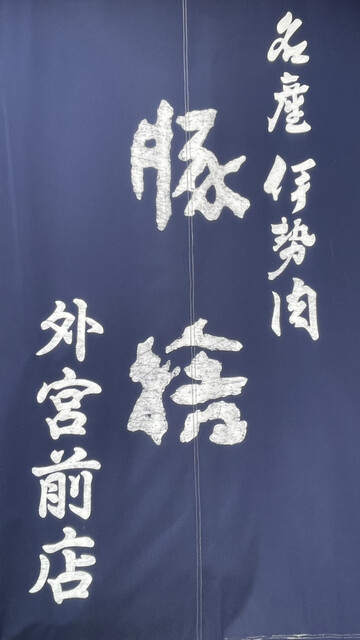 名産 伊勢肉
豚捨
外宮前店